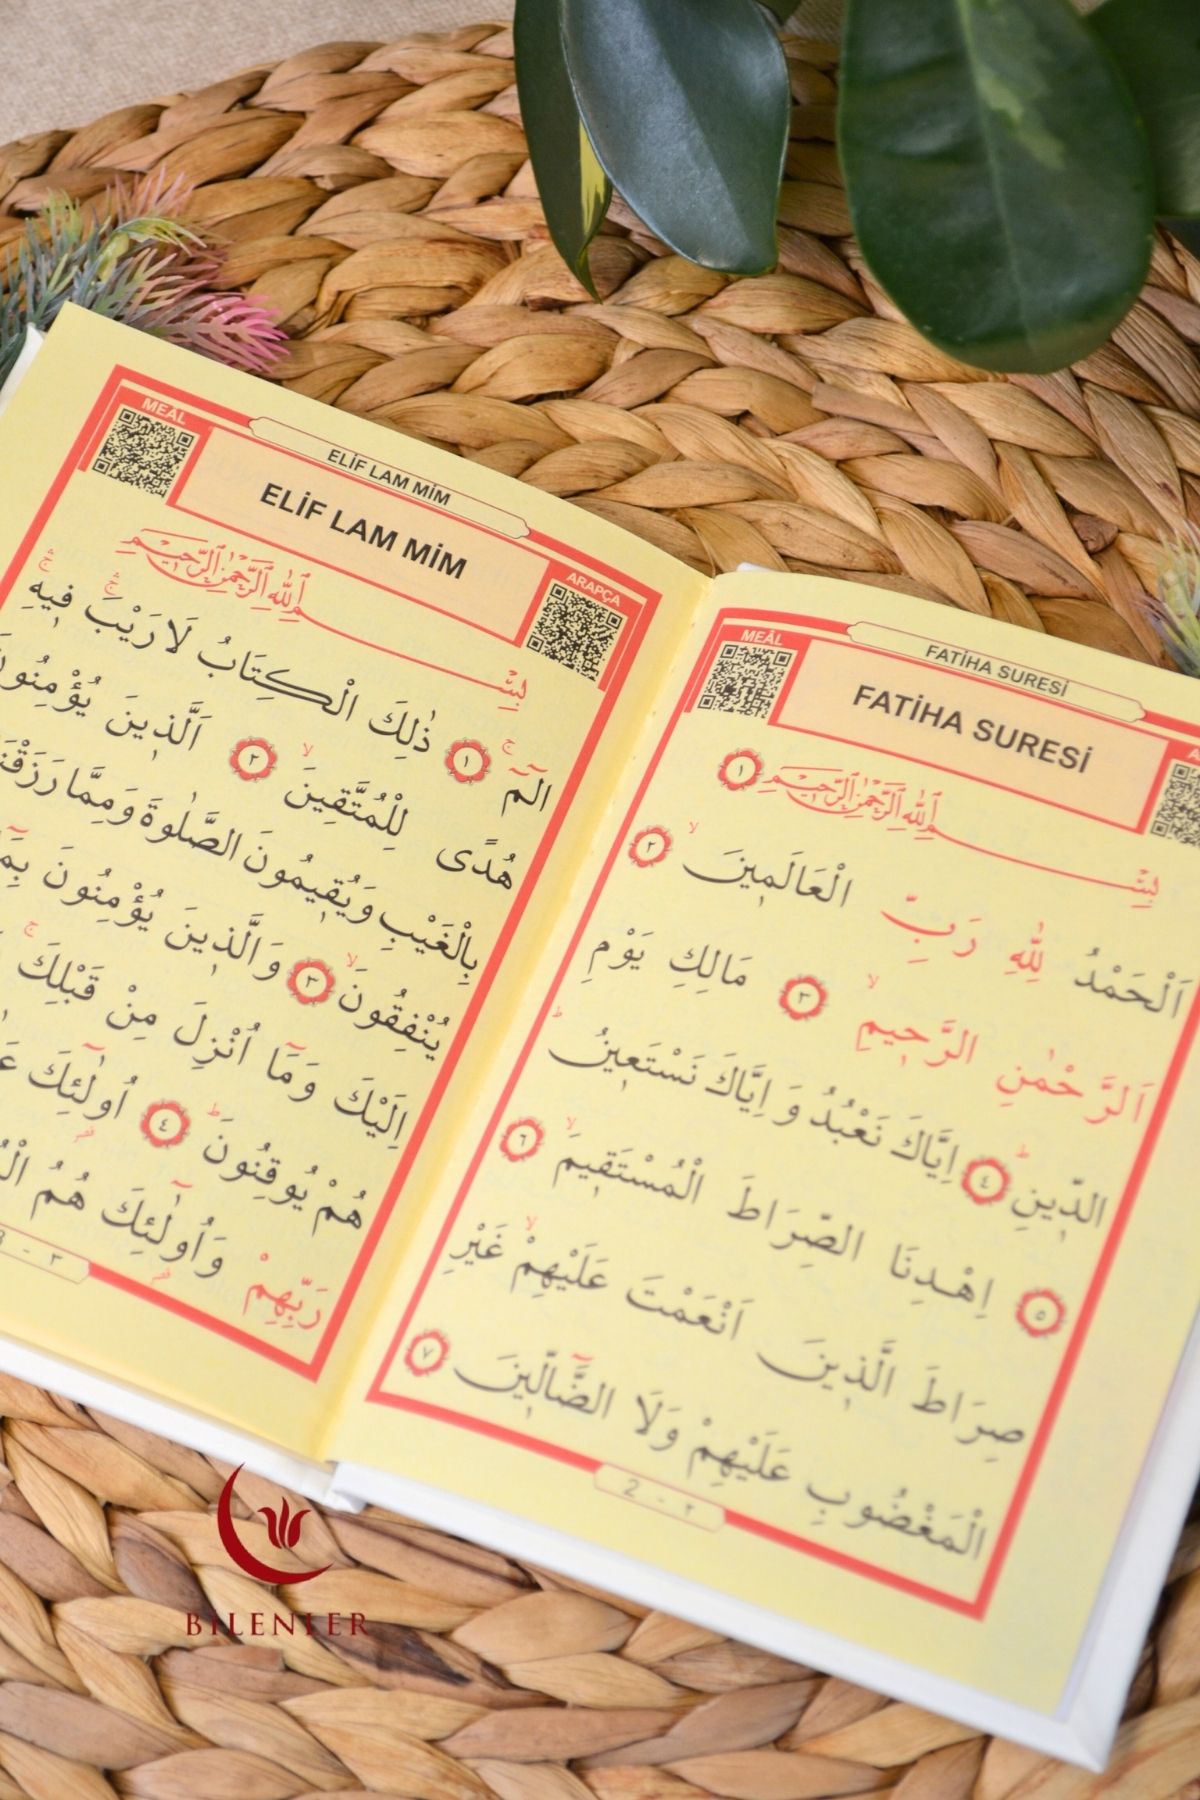 MEAL
ELİF LAM MİM
ELİF LAM MİM
ARAPÇA
بِسْمِ اللهِ الرَّحْمٰنِ الرَّحِيمِ
الٓمٓ ۚ ﴿١﴾ ذٰلِكَ الْكِتَابُ لَا رَيْبَ ۚ فِيهِ ۚ
هُدًى لِلْمُتَّقِينَ ۙ ﴿٢﴾ اَلَّذِينَ يُؤْمِنُونَ
بِالْغَيْبِ وَيُقِيمُونَ الصَّلٰوةَ وَمِمَّا
يُنْفِقُونَ ۙ ﴿٣﴾ وَالَّذِينَ يُؤْمِنُونَ
اِلَيْكَ وَمَٓا اُنْزِلَ مِنْ قَبْلِكَ ۚ
هُمْ يُوقِنُونَ ۜ ﴿٤﴾ اُولٰٓئِكَ
رَبِّهِمْ وَاُولٰٓئِكَ هُمُ
٣ -
MEÂL
FATİHA SURESİ
FATİHA SURESİ
بِسْمِ اللهِ الرَّحْمٰنِ الرَّحِيمِ ﴿١﴾
اَلْحَمْدُ لِلّٰهِ رَبِّ الْعَالَمِينَ ۙ ﴿٢﴾
اَلرَّحْمٰنِ الرَّحِيمِ ۙ ﴿٣﴾ مَالِكِ يَوْمِ
الدِّينِ ۜ ﴿٤﴾ اِيَّاكَ نَعْبُدُ وَاِيَّاكَ نَسْتَعِينُ ۜ
﴿٥﴾ اِهْدِنَا الصِّرَاطَ الْمُسْتَقِيمَ ۙ ﴿٦﴾
صِرَاطَ الَّذِينَ اَنْعَمْتَ عَلَيْهِمْ ۙ غَيْرِ
الْمَغْضُوبِ عَلَيْهِمْ وَلَا الضَّٓالِّينَ ﴿٧﴾
2 - ٢
BİLENLER